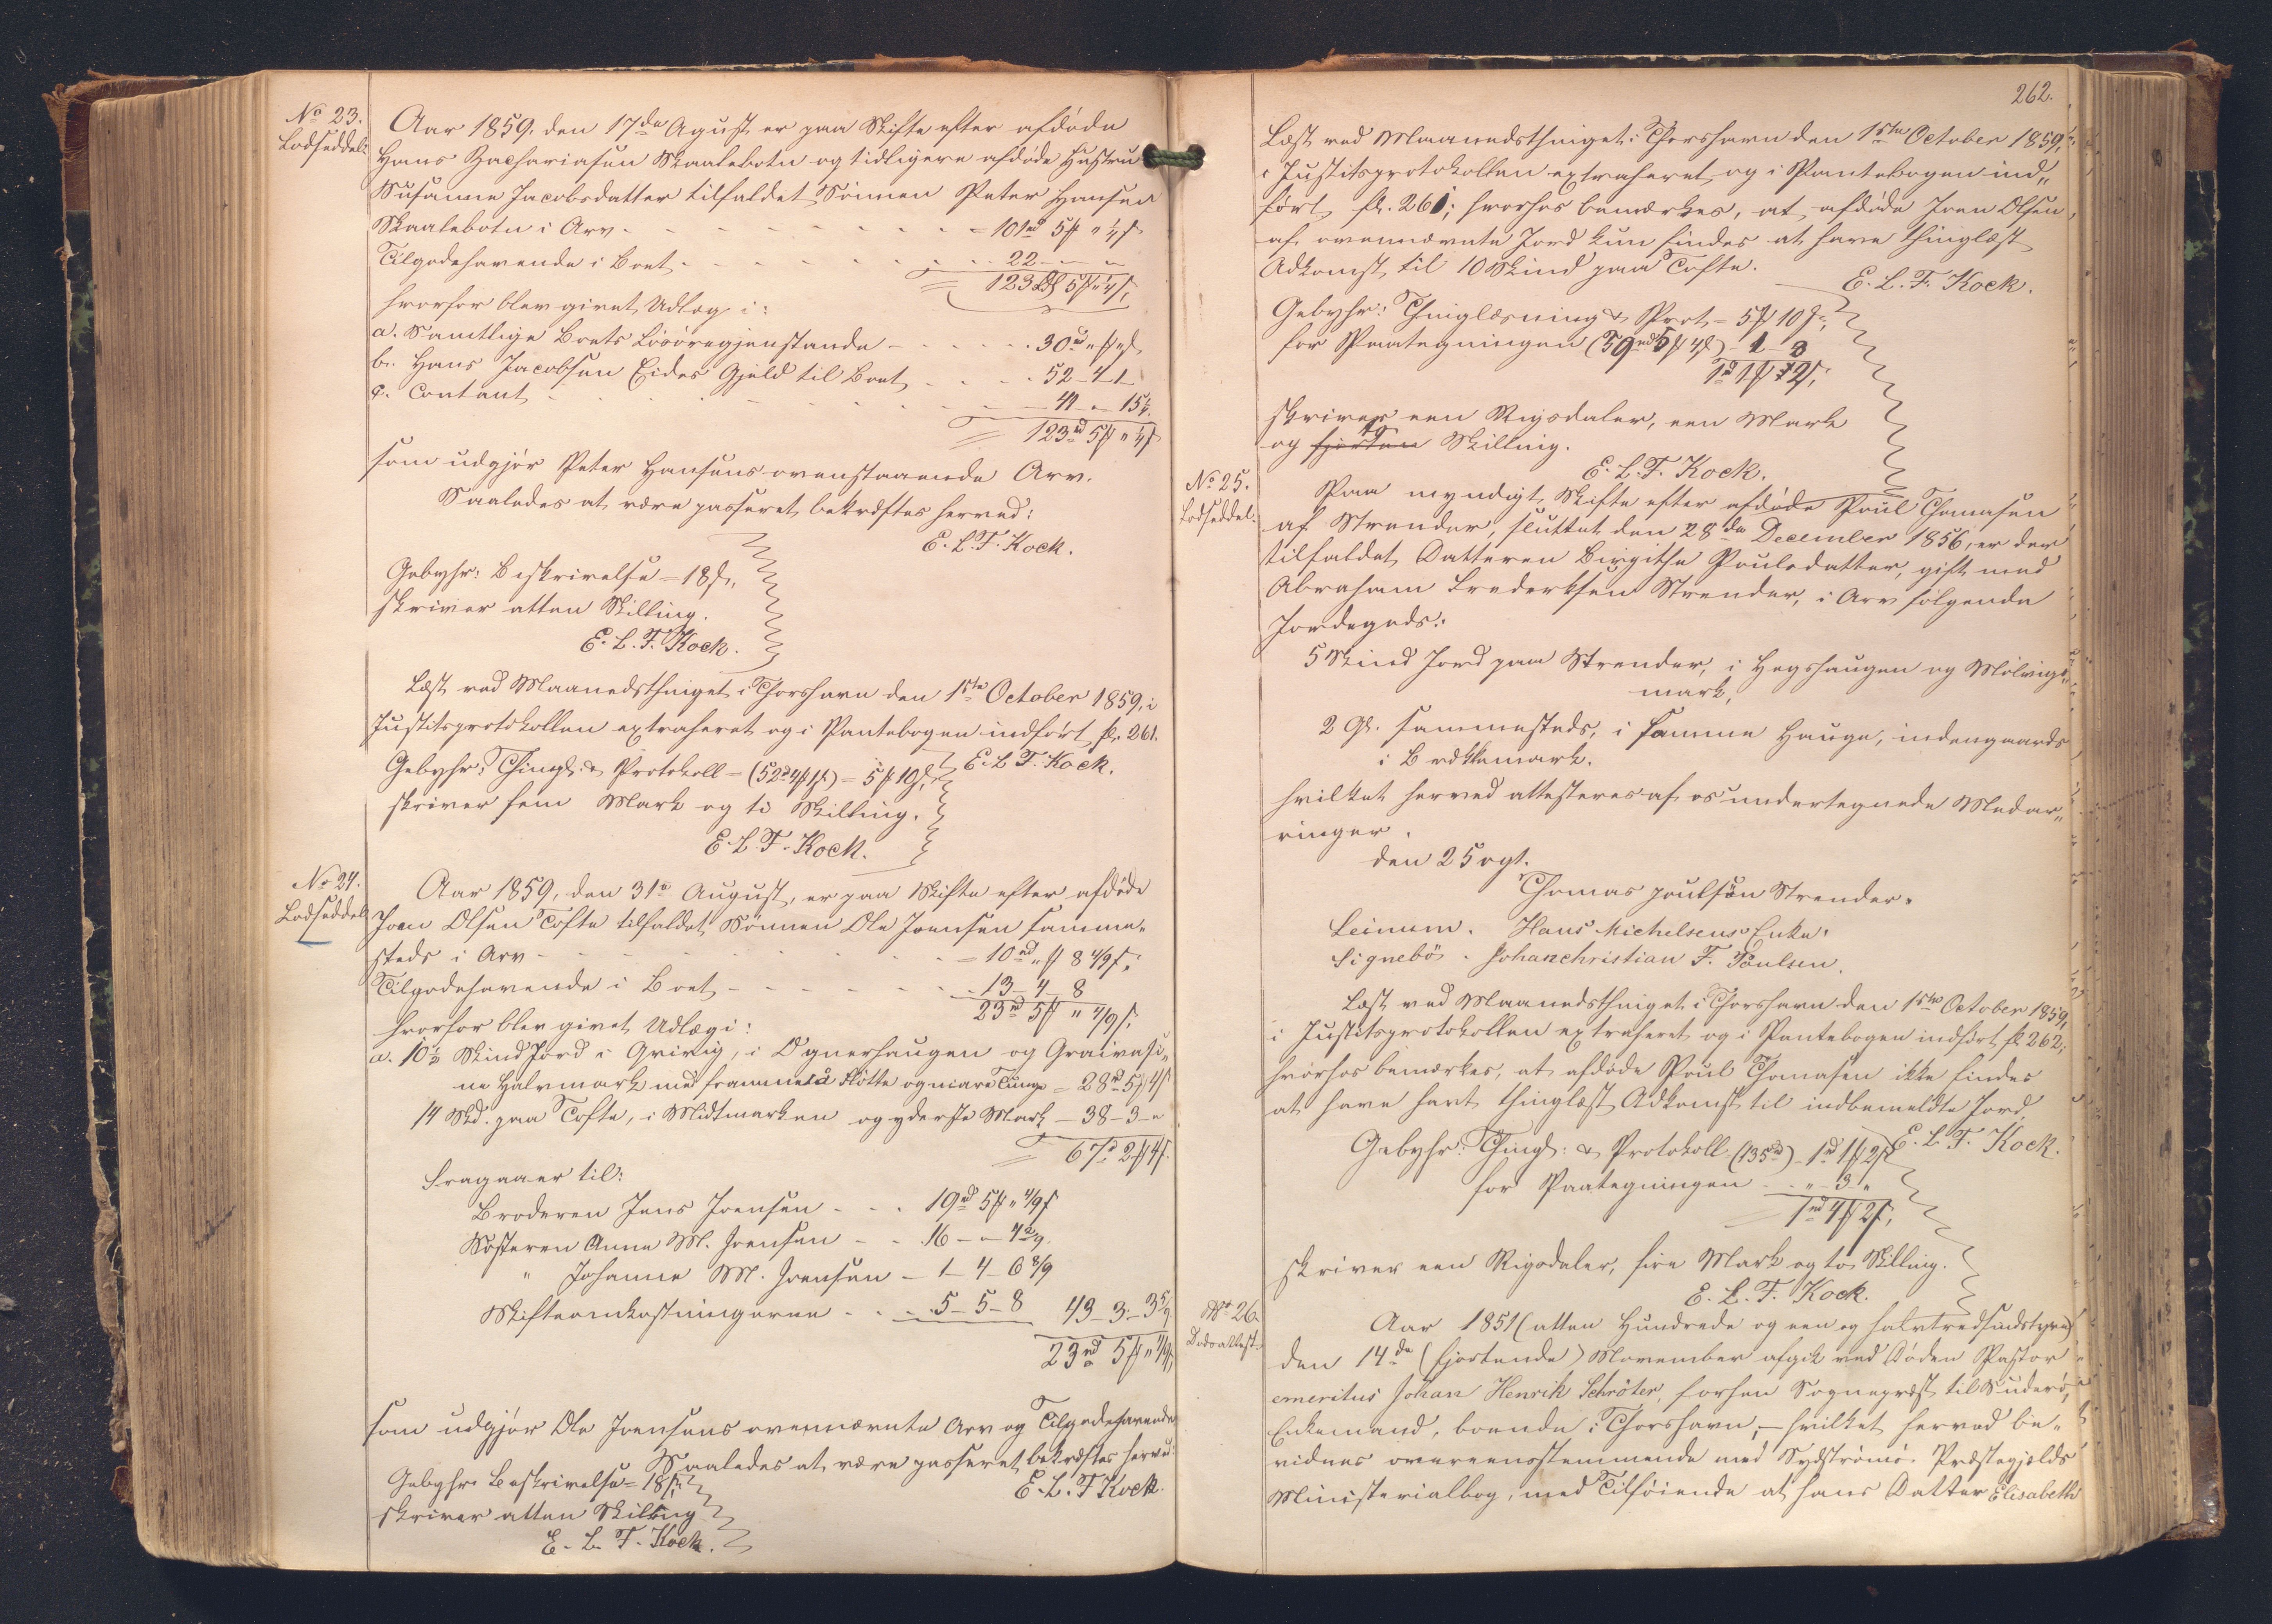 No 23.
Lodseddel.
Aar 1859. den 17de August er paa Skifte efter afdøde
Hans Zachariasen Skaalebotn og tidligere afdøde Hustru
Susanne Jacobsdatter tilfaldet Sönnen Peter Hansen
Skaalebotn i Arv - - - = 101rd 5ß " ½ s
Tilgodehavende i Boet - - - 22 - " - "
= 123rd 5ß " ½ s,
hvorfor blev givet Udlæg i:
a. Samtlige Boets Lösöregjenstande - - - 30rd " ß " s
b. Hans Jacobsen Eides Gjeld til Boet - - - 52 - 4 - 1 -
c. Contant - - - 41 - " - 15½.
= 123rd 5ß " ½ s
som udgjör Peter Hansens ovenstaaende Arv.
Saaledes at være passeret bekræftes herved:
E. L. F. Kock.
Gebyhr: Beskrivelse = 18 s,
skriver atten Skilling.
E. L. F. Kock.
Læst ved Maanedsthinget i Thorshavn den 1ste October 1859, i
Justitsprotokollen extraheret og i Pantebogen indført fl. 261.
E. L. F. Kock.
Gebyhr: Thingl: & Protokoll = (52rd 4ß 1s) = 5ß 10s,
skriver fem Mark og ti Skilling.
E. L. F. Kock.
No 24.
Lodseddel.
Aar 1859, den 31te August, er paa Skifte efter afdøde
Joen Olsen Tofte tilfaldet Sönnen Ole Joensen samme-
steds i Arv - - - = 10rd " ß 8 4/9 s,
Tilgodehavende i Boet - - - 13 - 4 - 8
23rd 5ß " 4/9 s,
hvorfor blev givet Udlæg i:
a. 10½ Skind Jord i Qvivig, i Ognerhaugen og
ne Halvmark med Slötte og Tunge = 28rd 5ß 4s
14 Skd. paa Tofte, i Midtmarken og yderste Mark - 38 - 3 - "
= 67rd 2ß 4s.
fragaaer til:
Broderen Jens Joensen - - - 19rd 5ß " 4/9 s
Søsteren Anne M. Joensen - - 16 - " - 4 2/9.
" Johanne M. Joensen - 1 - 4 - 6 8/9
Skifteomkostningerne - - - 5 - 5 - 8 43 - 3 - 3 5/9
23rd 5ß " 4/9 s,
som udgjör Ole Joensens ovennævnte Arv og Tilgodehavende
Saaledes at være passeret bekræftes herved:
E. L. F. Kock.
Gebyhr: Beskrivelse = 18 s,
skriver atten Skilling
E. L. F. Kock.
262.
Læst ved Maanedsthinget i Thorshavn den 1ste October 1859,
i Justitsprotokollen extraheret og i Pantebogen ind-
ført fl. 261; hvorhos bemærkes, at afdøde Joen Olsen
af ovennævnte Jord kun findes at have thinglæst
Adkomst til 10 Skind paa Tofte.
E. L. F. Kock.
Gebyhr: Thinglæsning & Prot. = 5ß 10 s,
for Paategningen (59rd 5ß 4s) - 1 - 8
1rd 1ß 2s,
skriver een Rigsdaler, een Mark
to
og fjorten Skilling.
E. L. F. Kock.
No 25.
Lodseddel.
Paa myndigt Skifte efter afdøde Poul Thomasen
af Strender, sluttet den 28de December 1856, er der
tilfaldet Datteren Birgithe Poulsdatter, gift med
Abraham Frederksen Strender, i Arv følgende
Jordegods:
5 Skind Jord paa Strender, i Hegshaugen og Mölvigs-
mark,
2 Gl. sammesteds, i samme Hauge, indengaards
i Bækkemark.
hvilket herved attesteres af os undertegnede Medar-
vinger.
den 25 ogt.
Thomas poulsön Strender.
Leinum. Hans Michelsens Enke.
Signebö. Johanchristian F. Poulsen.
Læst ved Maanedsthinget i Thorshavn den 1ste October 1859,
i Justitsprotokollen extraheret og i Pantebogen indført fl. 262;
hvorhos bemærkes, at afdøde Poul Thomasen ikke findes
at have havt thinglæst Adkomst til indbemeldte Jord.
E. L. F. Kock.
Gebyhr: Thingl: & Protokoll (135rd) - 1rd 1ß 2s
for Paategningen - - " - 3 - "
1rd 4ß 2s,
skriver een Rigsdaler, fire Mark og to Skilling.
E. L. F. Kock.
No 26.
Dödsattest.
Aar 1851 (atten Hundrede og een og halvtredsindstyve)
den 14de (fjortende) November afgik ved Døden Pastor
emeritus Johan Henrik Schröter, forhen Sognepræst til Suderö,
Enkemand, boende i Thorshavn, - hvilket herved be-
vidnes overeensstemmende med Sydströmö Præstegjælds
Ministerialbog, med Tilføiende at hans Datter Elisabeth